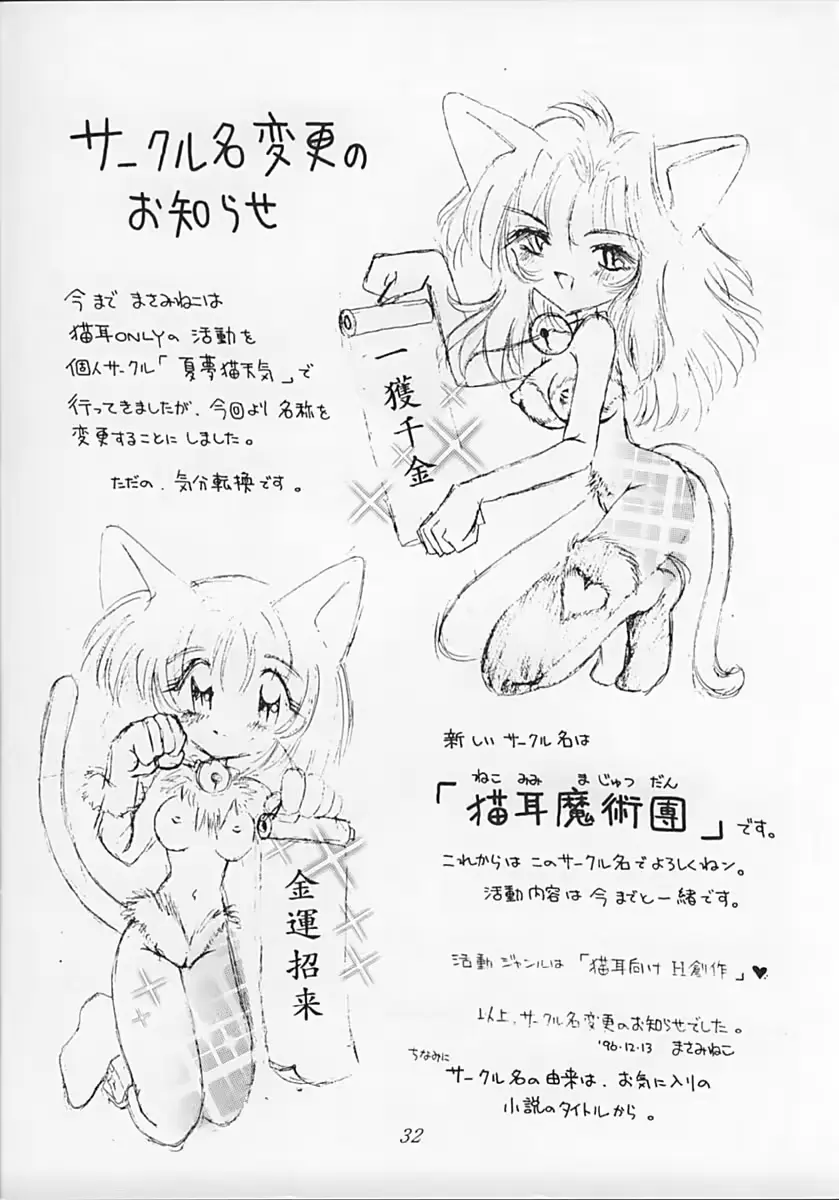 サークル名変更の
お知らせ
今まで まさみねこは
猫耳ONLYの 活動を
個人サークル「夏夢猫天気」で
行ってきましたが、今回より 名称を
変更することにしました。
ただの、気分転換です。
一獲千金
金運招来
新しい サークル名は
ねこ みみ ま じゅつ だん
「猫耳魔術團」です。
これからは このサークル名で よろしくねン。
活動内容は 今までと一緒です。
活動ジャンルは「猫耳向け H創作」♥
以上、サークル名変更のお知らせでした。
'96.12.13 まさみねこ
ちなみに
サークル名の由来は、お気に入りの
小説のタイトルから。
32